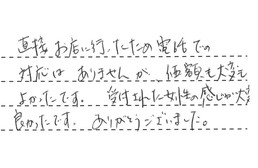 直接お店に行ったため電話での
対応はありませんが、価額も大変
よかったです。受付された女性の感じが大変
良かったです。ありがとうございました。